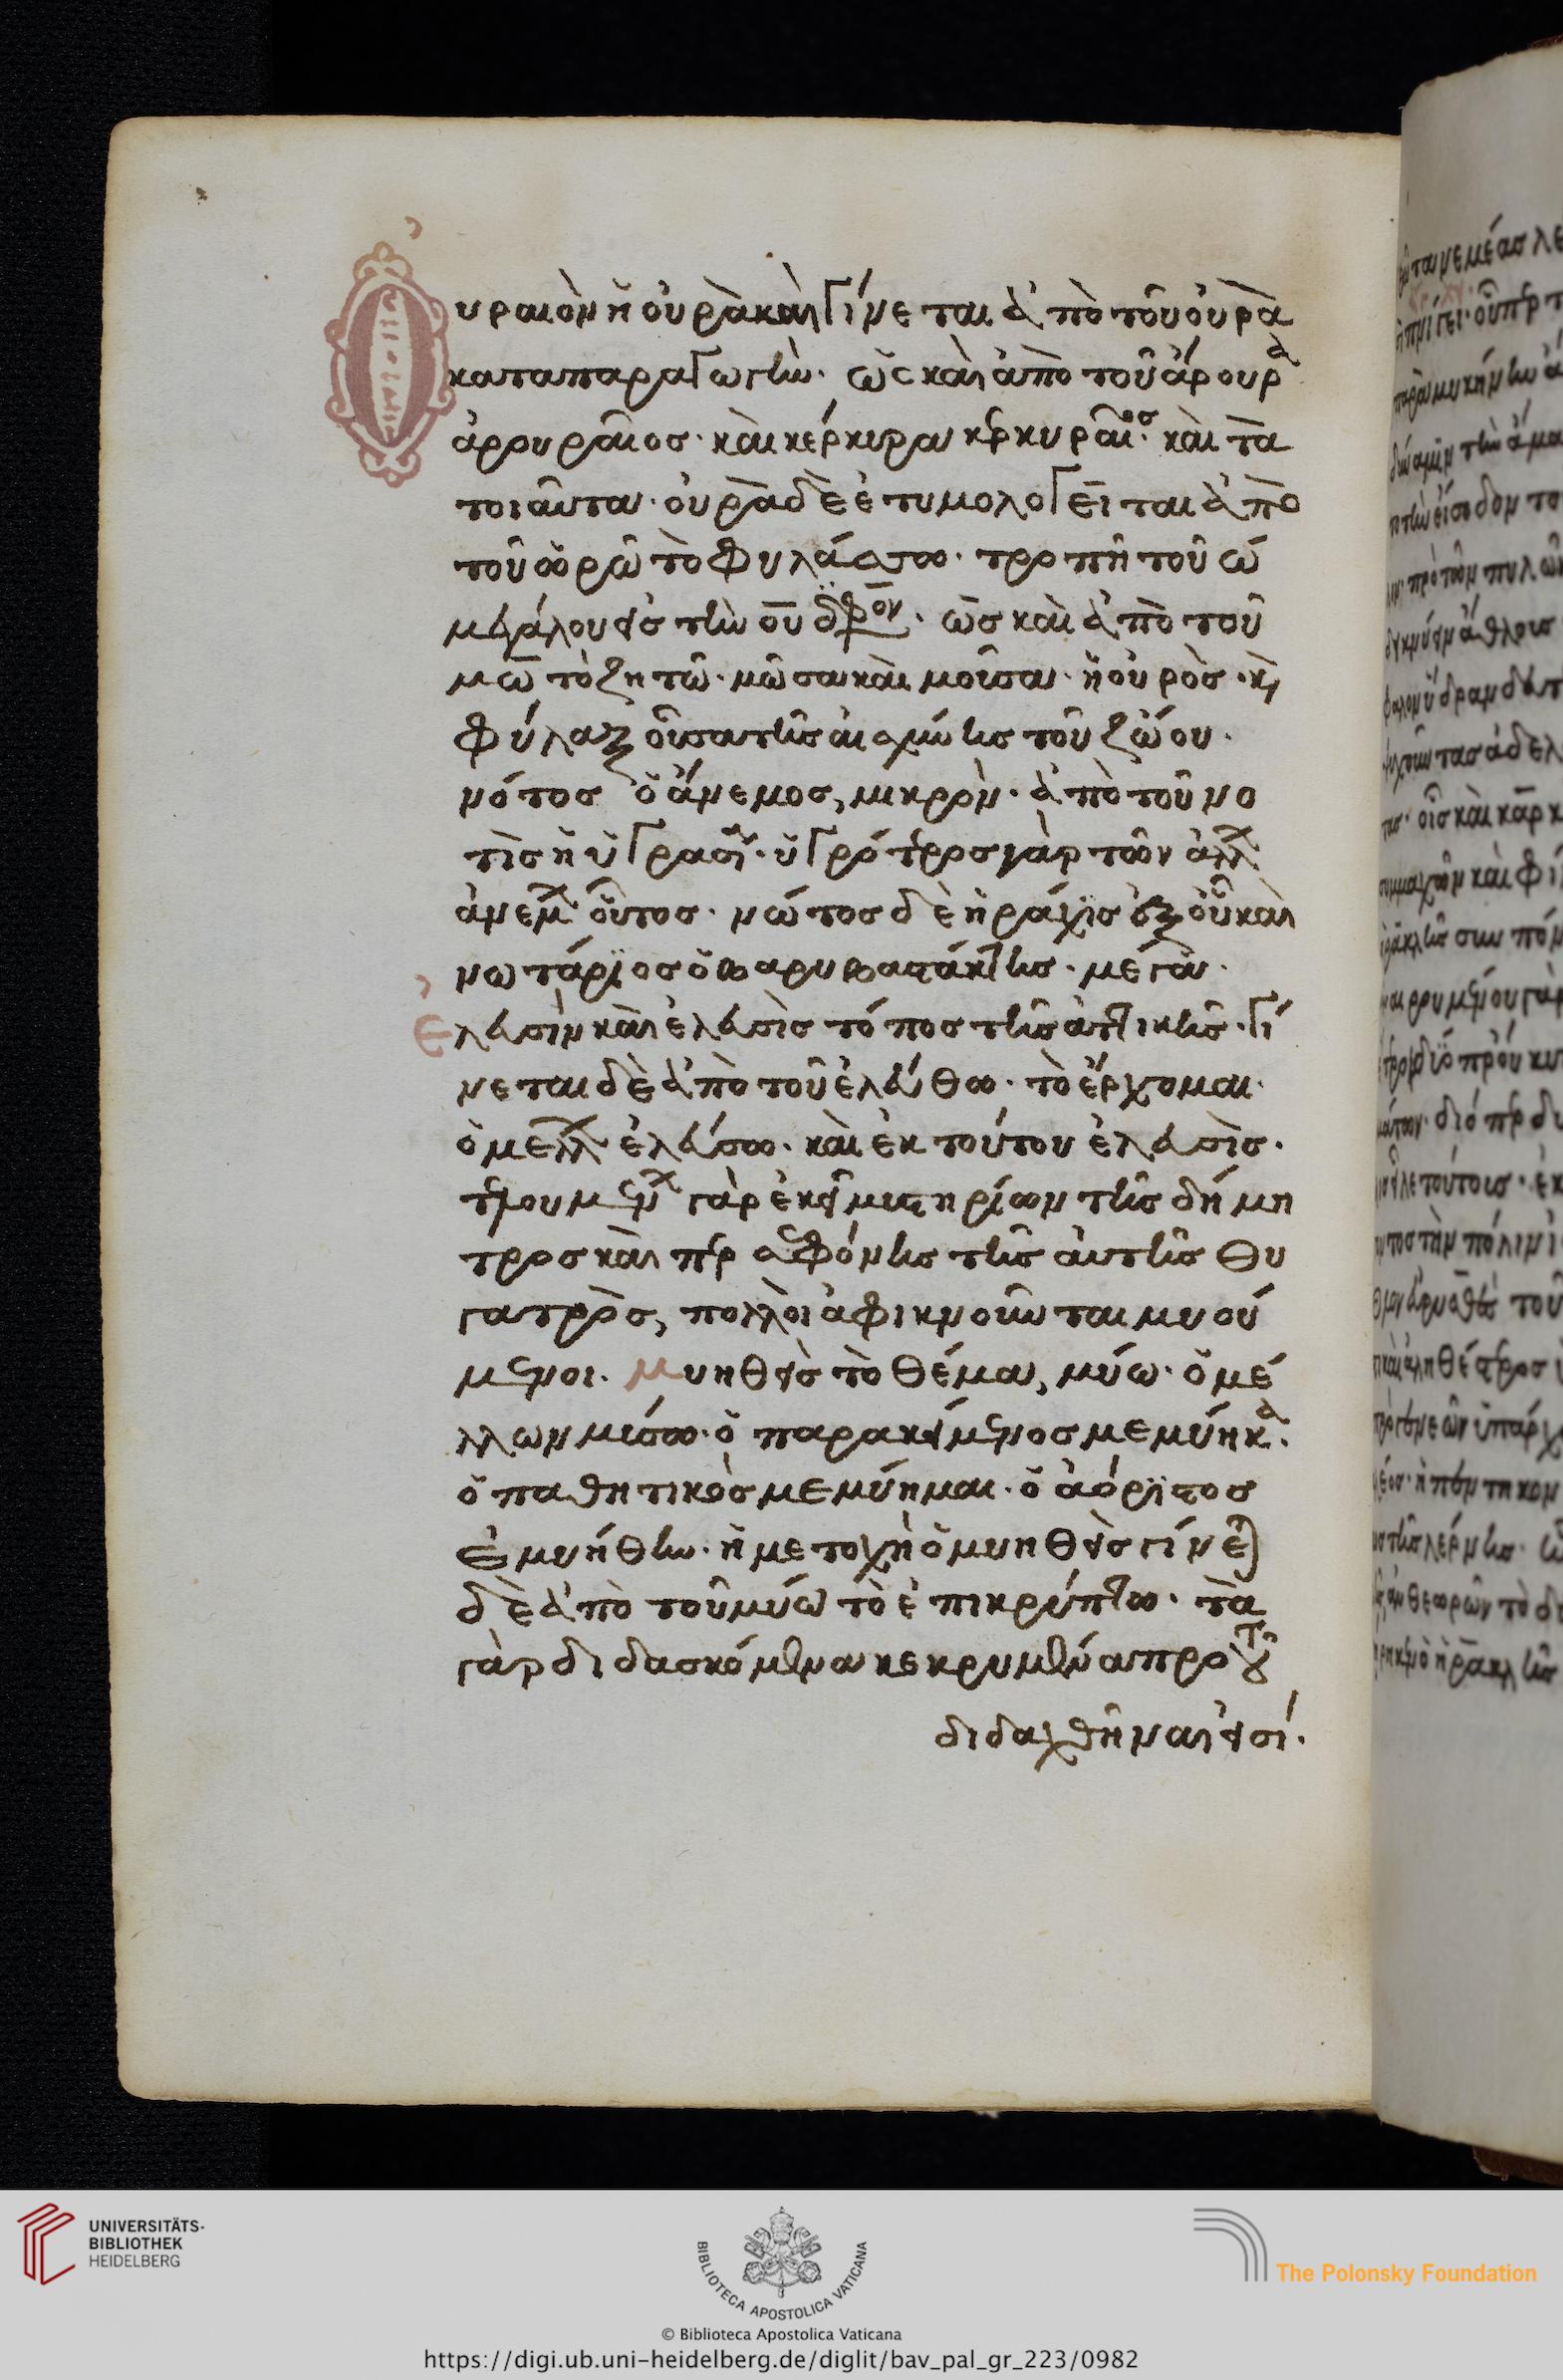 Ουραιὸν ἡ οὐρὰ καὶ γίνεται ἀπὸ τοῦ οὐρὰ
κατα παραγωγὴν· ὡς καὶ ἀπὸ τοῦ ἄρουρα
ἀρουραῖος· καὶ κέρκυρα κερκυραῖος· καὶ τὰ
τοιαῦτα· οὐρὰ δὲ ἐτυμολογεῖται ἀπὸ
τοῦ ὀρῶ τὸ φυλάσσω· τροπῆ τοῦ ω
μεγάλου εἰς τὴν ου δίφθογγον· ὡς καὶ ἀπὸ τοῦ
μῶ τὸ ζητῶ· μῶσα καὶ μοῦσα· ἡ οὐρὸς· καὶ
φύλαξ οὖσα τῆς αἰσχύνης τοῦ ζώου·
νότος ὁ ἄνεμος, μικρὸν· ἀπὸ τοῦ νο
τὶς ἡ ὑγρασία· ὑγρότερος γὰρ τῶν ἄλλων
ἀνέμων οὗτος· νώτος δὲ ἡ ράχις ἐξ οὗ καὶ
νωτάριος ὁ βαρυβαστάκτης· μέγα·
Ελευσὶν καὶ ἐλευσὶς τόπος τῆς ἀττικῆς· γί
νεται δὲ ἀπὸ τοῦ ἐλεύθω· τὸ ἔρχομαι·
ὁ μέλλων ἐλεύσω· καὶ ἐκ τούτου ἐλευσὶς·
τελουμένων γὰρ ἐκεῖ μυστηρίων τῆς δήμη
τρος καὶ περσεφόνης τῆς αὐτῆς θυ
γατρὸς, πολλοὶ ἀφικνοῦνται μυού
μενοι. Μυηθεὶς τὸ θέμα, μύω· ὁ μέ
λλων μύσω· ὁ παρακείμενος μεμύηκα·
ὁ παθητικὸς μεμύημαι· ὁ ἀόριστος
ἐμυήθην· ἡ μετοχὴ ὁ μυηθεὶς γίνεται
δὲ ἀπὸ τοῦ μύω τὸ ἐπικρύπτω· τὰ
γὰρ διδασκόμενα κεκρυμμένα προ τοῦ
διδαχθῆναι εἰσί.
UNIVERSITÄTS-
BIBLIOTHEK
HEIDELBERG
BIBLIOTECA APOSTOLICA VATICANA
The Polonsky Foundation
© Biblioteca Apostolica Vaticana
https://digi.ub.uni-heidelberg.de/diglit/bav_pal_gr_223/0982